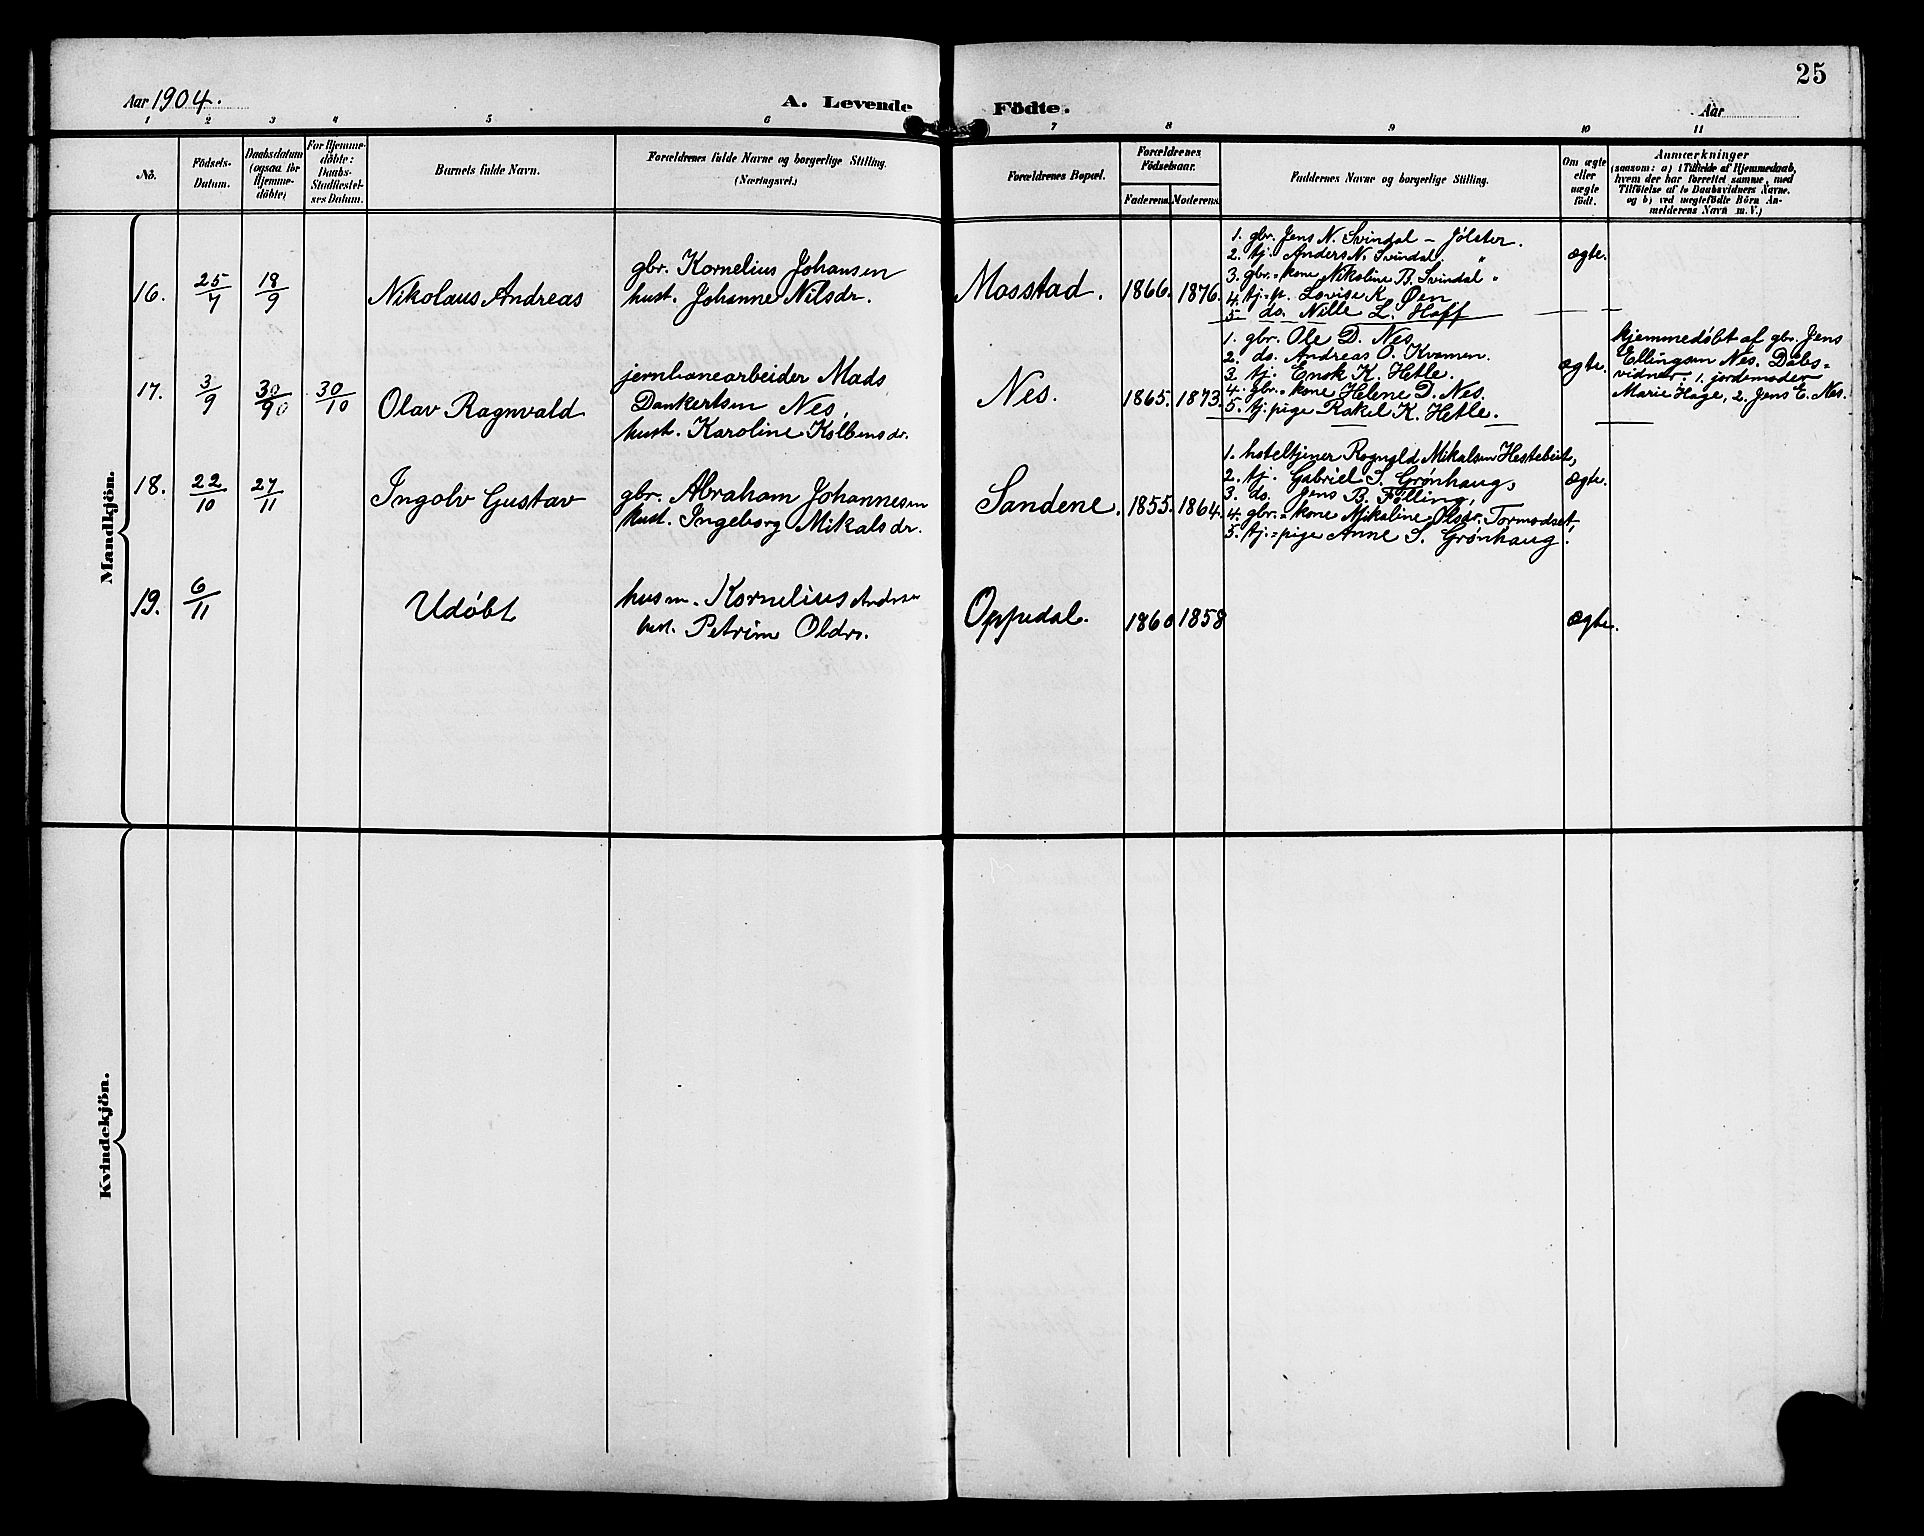 25
Aar 1904.
A. Levende Födte.
Aar
1 2 3 4 5 6 7 8 9 10 11
No.
Födsels-Datum.
Daabsdatum (ogsaa for Hjemme-döbte)
For Hjemme-döbte: Daabs-Stadfæstel-ses Datum.
Barnets fulde Navn.
Forældrenes fulde Navne og borgerlige Stilling.
(Næringsvei.)
Forældrenes Bopæl.
Forældrenes Födselsaar.
Faderens. Moderens.
Faddernes Navne og borgerlige Stilling.
Om ægte eller uægte födt.
Anmærkninger
(saasom: a) i Tilfælde af Hjemmedaab,
hvem der har forrettet samme, med
Tilföielse af to Daabsvidners Navne.
og b) ved uægtefödte Börn An-
melderens Navn m. V.)
Mandkjön.
16. 25/7 18/9 Nikolaus Andreas
gbr. Kornelius Johansen
hust. Johanne Nilsdr.
Mosstad. 1866. 1876.
1. gbr. Jens N. Svindal – Jølster.
2. tj. Anders N. Svindal "
3. gbr.-kone Nikoline B. Svindal "
4. tj.-p. Lovise K. Øen
5. do. Nille L. Hoff
ægte.
17. 3/9 30/90 30/10 Olav Ragnvald
jernbanearbeider Mads
Dankertsen Nes,
hust. Karoline Kolbensdr.
Nes. 1865. 1873.
1. gbr. Ole D. Nes.
2. do. Andreas O. Kvamen.
3. tj. Enok K. Hetle.
4. gbr.-kone Helene D. Nes.
5. tj. pige Rakel K. Hetle.
ægte.
hjemmedøbt af gbr. Jens
Ellingsen Nes. Dåbs-
vidner: 1. jordemoder
Marie Hage, 2. Jens E. Nes.
18. 22/10 27/11 Ingolv Gustav
gbr. Abraham Johannesen
hust. Ingeborg Mikalsdr.
Sandene. 1855. 1864.
1. hoteltjener Rognald Mikalsen Hestebeit,
2. tj. Gabriel S. Grønhaug,
3. do. Jens B. Følling,
4. gbr.-kone Mikaline Olsdr. Tormodset,
5. tj.-pige Anne S. Grønhaug.
ægte.
19. 6/11 Udøbt
husm. Kornelius Andrsen
hust. Petrine Oldr.
Oppedal. 1860 1858
ægte.
Kvindekjön.